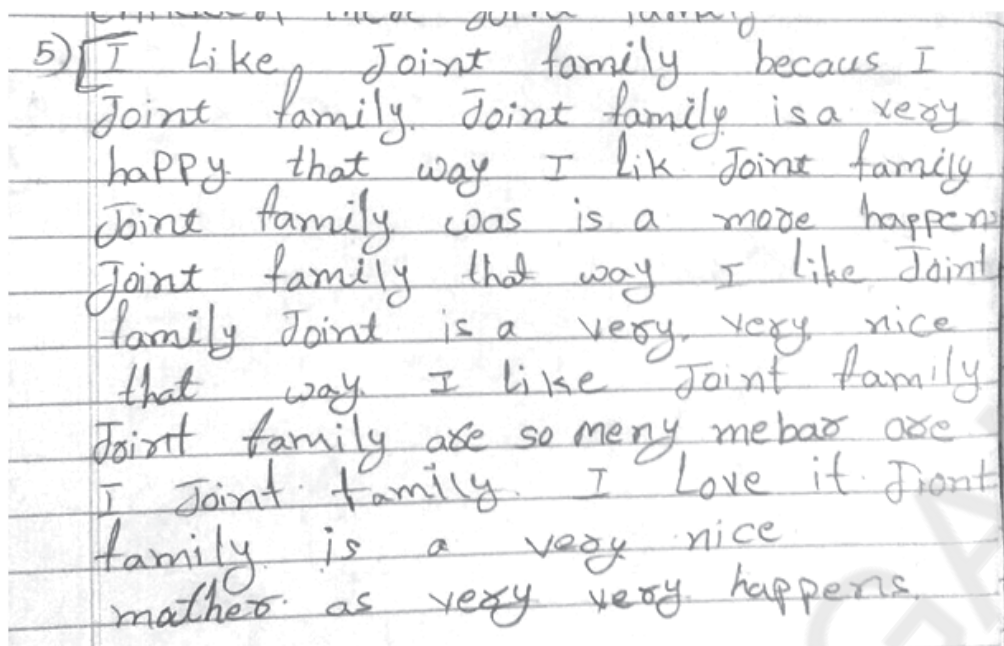 5) I Like Joint family becaus I
Joint family. Joint family is a very
happy that way I lik Joint family
Joint family was is a more happens
Joint family that way I like Joint
family Joint is a very very nice
that way I like Joint family
Joint family are so meny mebar are
I Joint family. I Love it Jiont
family is a very nice
mather as very very happens.